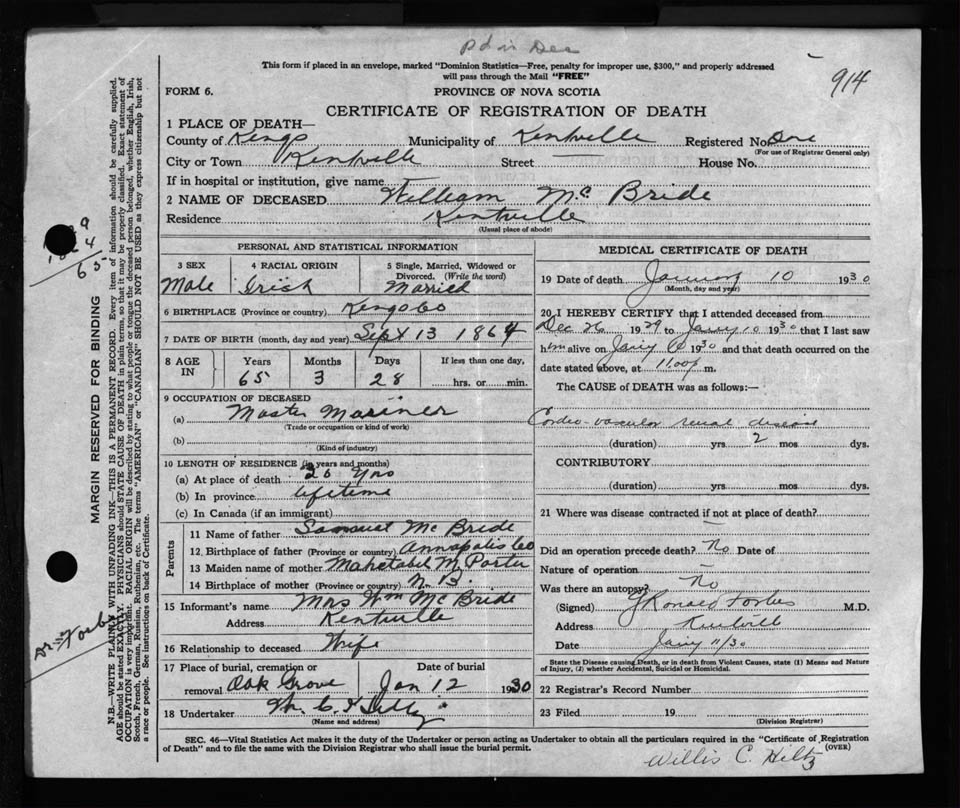 Pd in Dec
This form if placed in an envelope, marked "Dominion Statistics—Free, penalty for improper use, $300," and properly addressed
will pass through the Mail "FREE"
914
FORM 6.
PROVINCE OF NOVA SCOTIA
CERTIFICATE OF REGISTRATION OF DEATH
1 PLACE OF DEATH—
County of Kings Municipality of Kentville Registered No. One
(For use of Registrar General only)
City or Town Kentville Street — House No.
If in hospital or institution, give name
2 NAME OF DECEASED William Mc Bride
Residence Kentville
(Usual place of abode)
PERSONAL AND STATISTICAL INFORMATION
3 SEX Male
4 RACIAL ORIGIN Irish
5 Single, Married, Widowed or Divorced. (Write the word) Married
6 BIRTHPLACE (Province or country) Kings Co
7 DATE OF BIRTH (month, day and year) Sept 13 1864
8 AGE IN Years 65 Months 3 Days 28 If less than one day, hrs. or min.
9 OCCUPATION OF DECEASED
(a) Master Mariner
(Trade or occupation or kind of work)
(b)
(Kind of industry)
10 LENGTH OF RESIDENCE (in years and months)
(a) At place of death 26 yrs
(b) In province lifetime
(c) In Canada (if an immigrant)
Parents
11 Name of father Samuel Mc Bride
12 Birthplace of father (Province or country) Annapolis Co
13 Maiden name of mother Mahetabel M Porter
14 Birthplace of mother (Province or country) N. B.
15 Informant's name Mrs Wm Mc Bride
Address Kentville
16 Relationship to deceased Wife
17 Place of burial, cremation or Date of burial
removal Oak Grove Jan 12 1930
18 Undertaker W. C. Hiltz
(Name and address)
MEDICAL CERTIFICATE OF DEATH
19 Date of death January 10 1930
(Month, day and year)
20 I HEREBY CERTIFY that I attended deceased from
Dec 26 1929 to Jany 10 1930 that I last saw
him alive on Jany 10 1930 and that death occurred on the
date stated above, at 11.00 p m.
The CAUSE of DEATH was as follows:—
Cardio-vascular renal disease
(duration) yrs 2 mos dys.
CONTRIBUTORY
(duration) yrs. mos. dys.
21 Where was disease contracted if not at place of death?
—
Did an operation precede death? No Date of
Nature of operation —
Was there an autopsy? No
(Signed) J Ronald Forbes M.D.
Address Kentville
Date Jany 11/30
State the Disease causing Death, or in death from Violent Causes, state (1) Means and Nature
of Injury, (2) whether Accidental, Suicidal or Homicidal.
22 Registrar's Record Number
23 Filed 19
(Division Registrar)
SEC. 46—Vital Statistics Act makes it the duty of the Undertaker or person acting as Undertaker to obtain all the particulars required in the "Certificate of Registration
of Death" and to file the same with the Division Registrar who shall issue the burial permit.
(OVER)
Willis C. Hiltz
MARGIN RESERVED FOR BINDING
N.B.—WRITE PLAINLY WITH UNFADING INK—THIS IS A PERMANENT RECORD. Every item of information should be carefully supplied.
AGE should be stated EXACTLY. PHYSICIANS should STATE CAUSE OF DEATH in plain terms, so that it may be properly classified. Exact statement of
OCCUPATION is very important. RACIAL ORIGIN will be described by stating to what people or tongue the deceased person belonged, whether English, Irish,
Scotch, French, German, Russian, Ruthenian, etc. The terms "AMERICAN" or "CANADIAN" SHOULD NOT BE USED as they express citizenship but not
a race or people. See instructions on back of Certificate.
65
Dr. Forbes